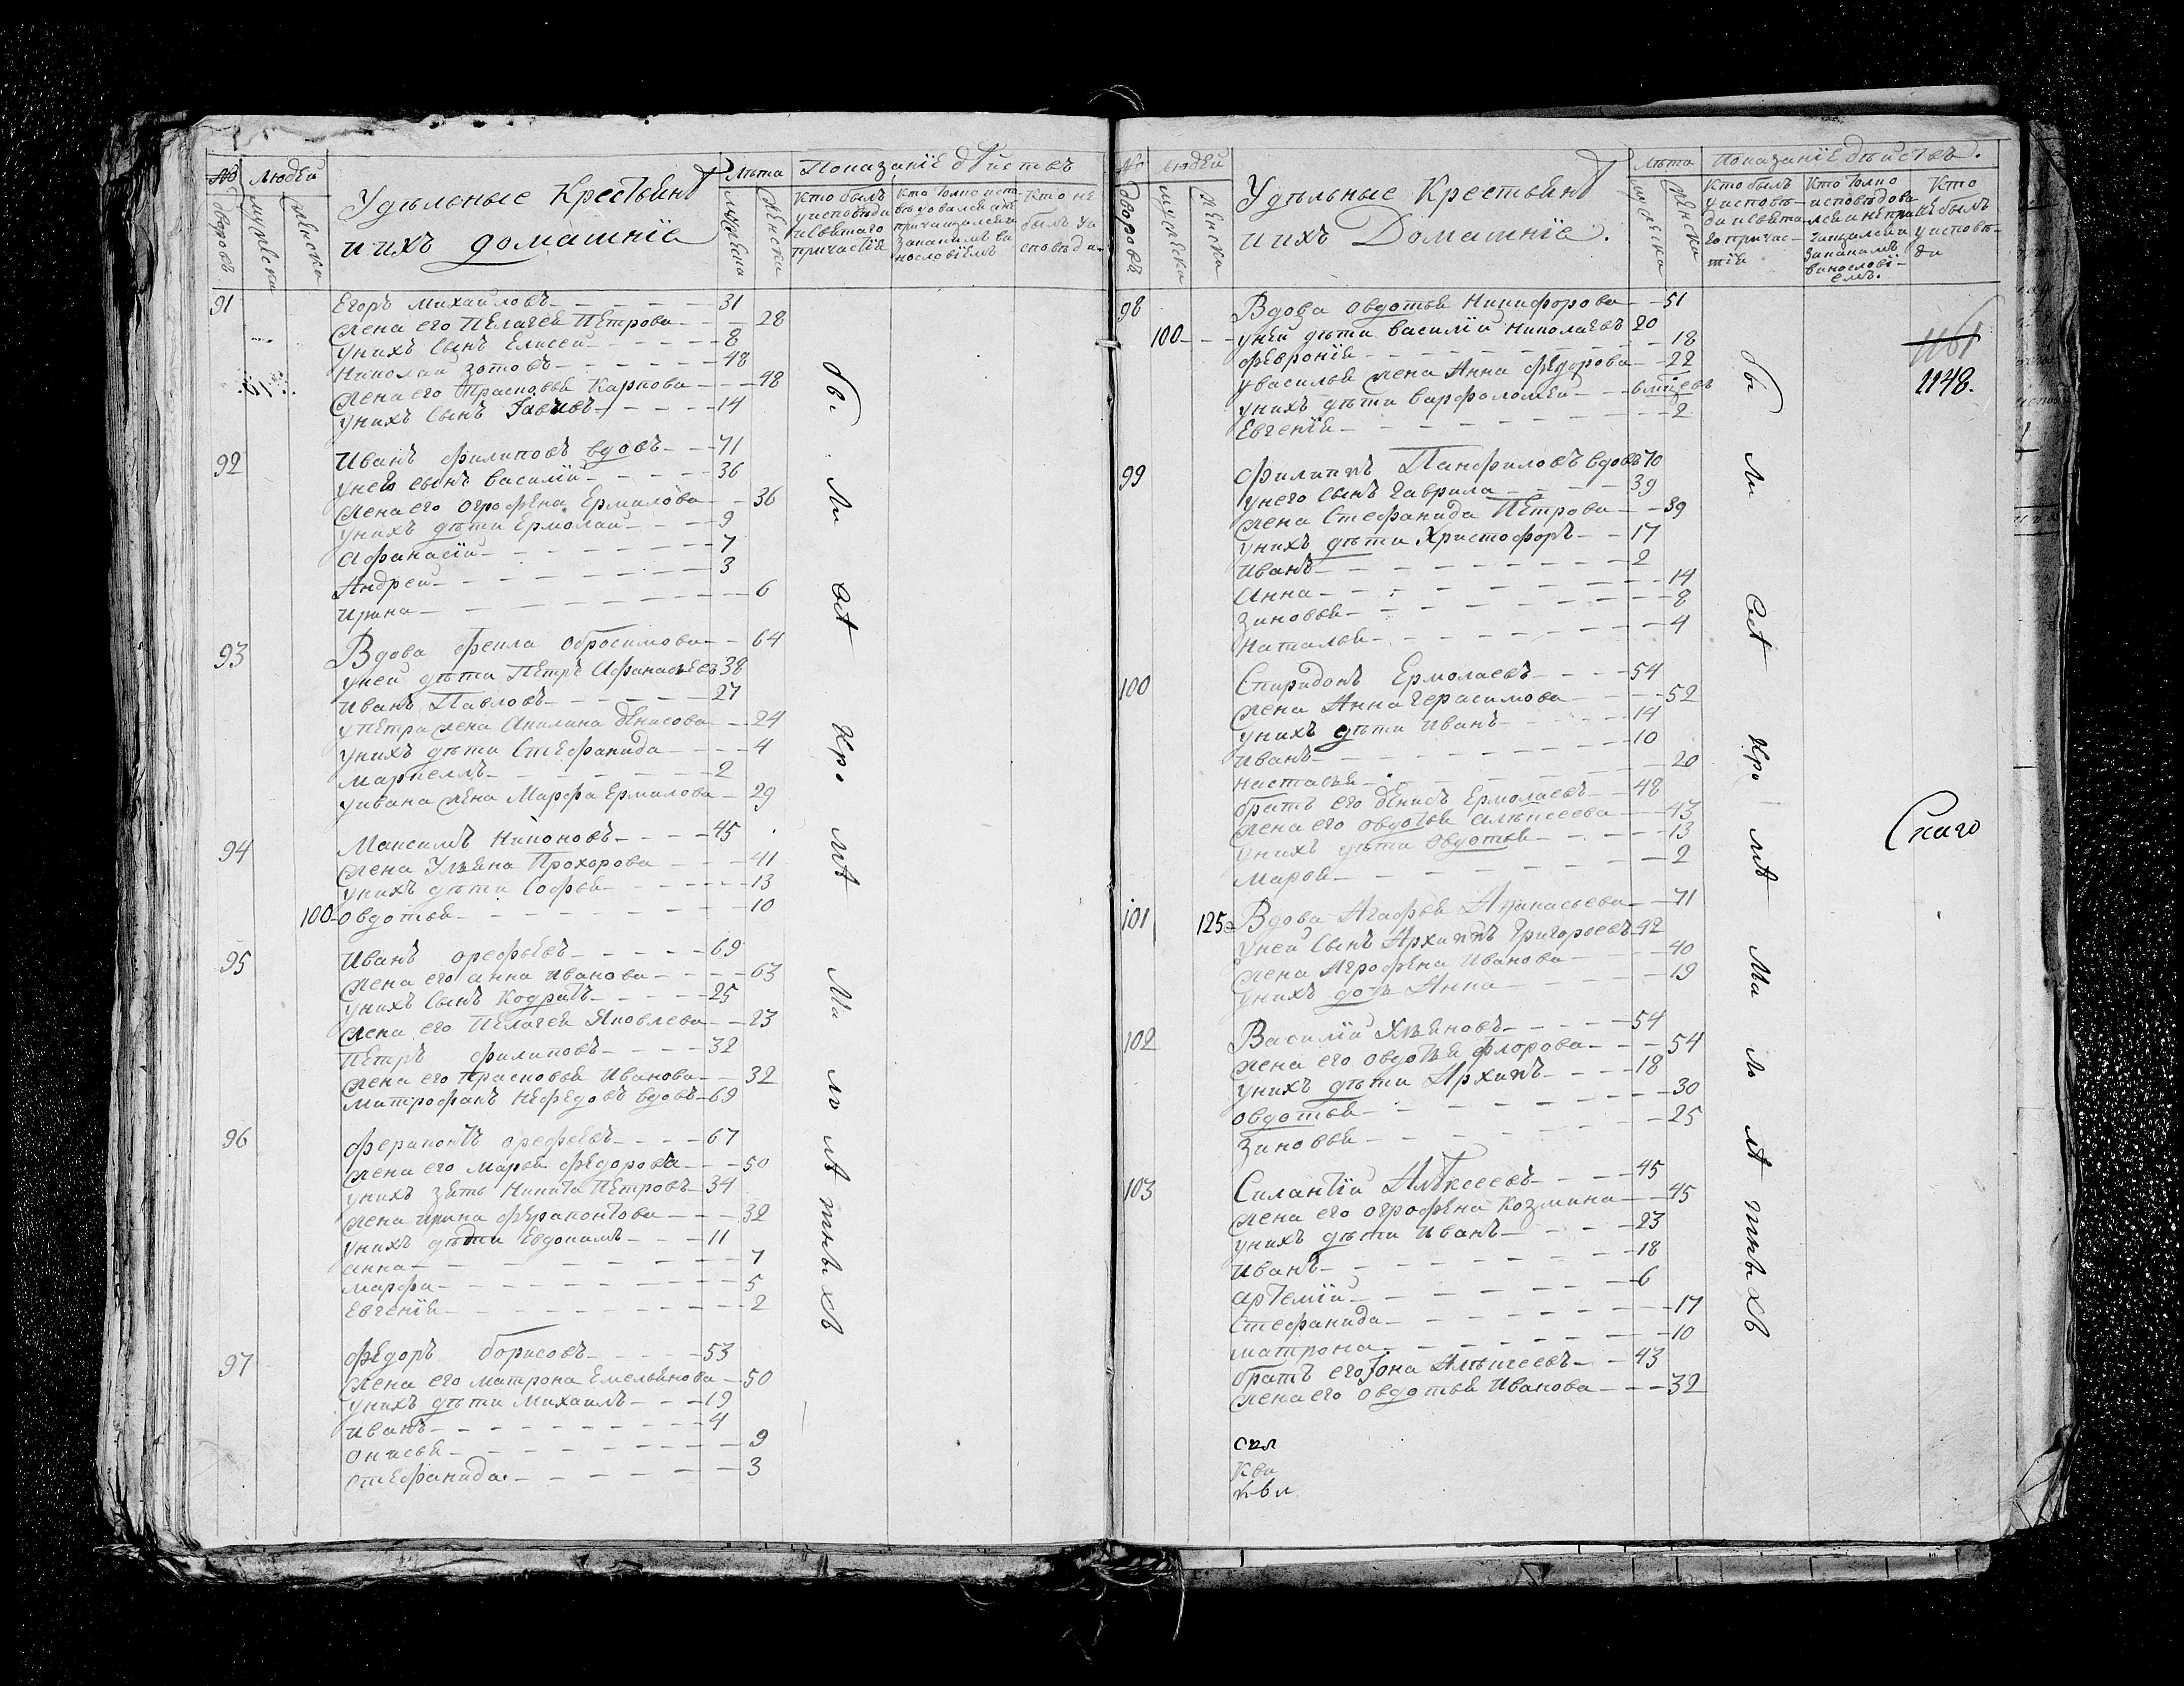 № Людей Лѣта Показанїе дѣиствъ
Удѣльные Крестьянѣ
и ихъ домашнїе
дворовъ мужеска женска мужеска женска
Кто былъ у исповѣди и святаго причастїя
Кто не былъ у исповѣди
91 Егоръ михаиловъ 31
жена его Пелагея Петрова 28
у нихъ сынъ Елисей 8
Николай зотовъ 48
жена его Прасковья Карпова 48
у нихъ сынъ 14
92 Иванъ филиповъ вдовъ 71
у него сынъ василїй 36
жена его огрофена Ермилова 36
у нихъ дѣти Ермолай 9
Афанасїй 7
Андрей 3
Ирина 6
93 Вдова фекла обросимова 64
у ней дѣти Петръ Афанасьевъ 38
Иванъ Павловъ 27
у петра жена Акилина денисова 24
у нихъ дѣти Стефанида 4
маркеллъ 2
у ивана жена Марфа Ермилова 29
94 Максимъ Никоновъ 45
жена Ульяна Прохорова 41
у нихъ дѣти Софья 13
100 овдотья 10
95 Иванъ орефьевъ 69
жена его анна иванова 63
у нихъ сынъ Кодратъ 25
жена его Пелагея Яковлева 23
Петръ филиповъ 32
жена его Прасковья Иванова 32
митрофанъ нефедовъ вдовъ 69
96 ферапонтъ орефьевъ 67
жена его марья федорова 50
у нихъ зять Никита Петровъ 34
жена ирина ферапонтова 32
у нихъ дѣти Евдокимъ 11
анна 7
марфа 5
евгенїя 2
97 федоръ борисовъ 53
жена его матрона Емельянова 50
у нихъ дѣти михаилъ 19
иванъ 4
онисья 9
стефанида 3
№ людей Лѣта Показанїе дѣиствъ.
Удѣльные Крестьянѣ
и ихъ Домашнїе.
дворовъ мужеска женска мужеска женска
Кто былъ у исповѣди и святаго причастїя
Кто толко исповѣдовался и не причащался и за какимъ винословїемъ.
Кто не былъ у исповѣди
98 Вдова овдотья Никифорова 51
100 у ней дѣти василїй николаевъ 20
февронїя 18
у василья жена Анна федорова 22
у нихъ дѣти варфоломей 6 мцевъ
Евгенїя 2
1161
1148.
99 филиппъ Панфиловъ вдовъ 70
у него сынъ гаврила 39
жена Стефанида Петрова 39
у нихъ дѣти Христофоръ 17
иванъ 2
анна 14
зиновья 8
наталья 4
100 Спиридонъ Ермолаевъ 54
жена Анна герасимова 52
у нихъ дѣти иванъ 14
иванъ 10
настасья 20
братъ его денисъ Ермолаевъ 48
жена его овдотья алѣксеева 43
у нихъ дѣти овдотья 13
марья 2
101 125 Вдова Агафья Афанасьева 71
у ней сынъ Архиппъ григорьевъ 42
жена Агрофена иванова 40
у нихъ дочь Анна 19
102 Василїй Ульяновъ 54
жена его овдотья флорова 54
у нихъ дѣти Архипъ 18
овдотья 30
зиновья 25
103 Силантїй Алѣксеевъ 45
жена его огрофена козмина 45
у нихъ дѣти иванъ 23
иванъ 18
артемїй 6
стефанида 17
матрона 10
братъ его Iона Алѣксеевъ 43
жена его овдотья иванова 32
бы ли всѣ кро мѣ ма ло лѣ тныхъ
бы ли всѣ кро мѣ ма ло лѣ тныхъ
скаго